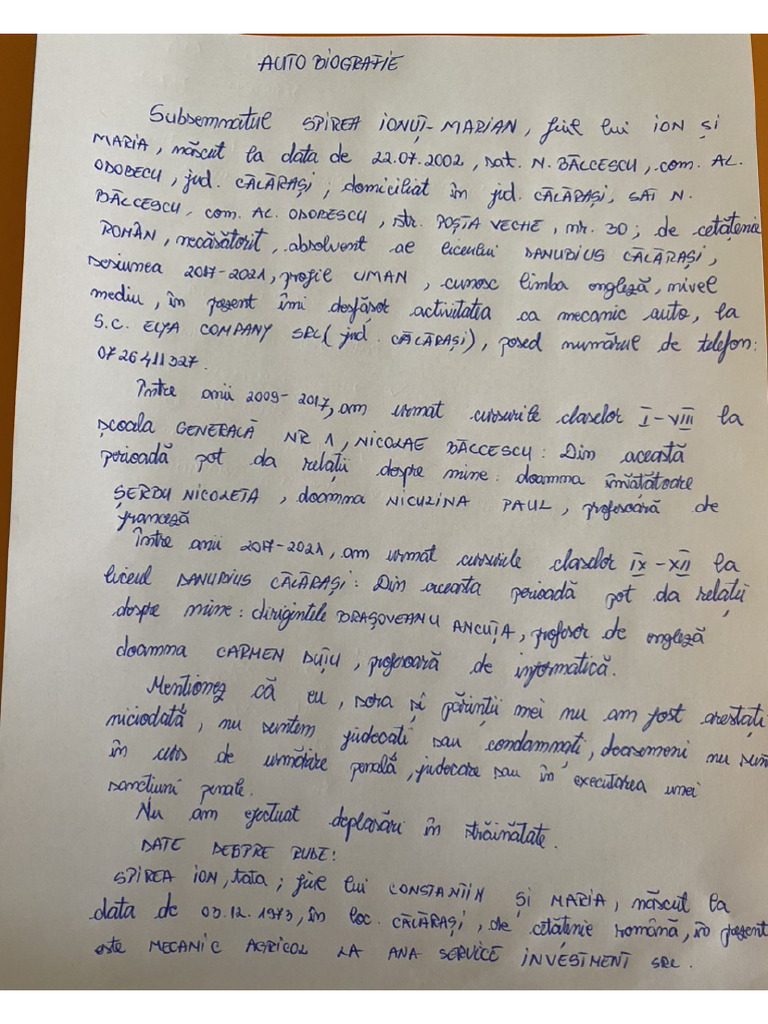 AUTO BIOGRAFIE
Subsemnatul SPIREA IONUȚ-MARIAN, fiul lui ION ȘI
MARIA, născut la data de 22.07.2002, sat. N. BĂLCESCU, com. AL.
ODOBECU, jud. CĂLĂRAȘI; domiciliat în jud. CĂLĂRAȘI, SAT N.
BĂLCESCU, com. AL. ODOBESCU, str. POȘTA VECHE, nr. 30; de cetățenie
ROMÂN, necăsătorit, absolvent al liceului DANUBIUS CĂLĂRAȘI,
sesiunea 2017-2021, profil UMAN, cunosc limba engleză, nivel
mediu, în prezent îmi desfășor activitatea ca mecanic auto, la
S.C. ELYA COMPANY SRL (jud. CĂLĂRAȘI), posed numărul de telefon:
0726411327.
Între anii 2009-2017, am urmat cursurile claselor I-VIII la
școala GENERALĂ NR 1, NICOLAE BĂLCESCU: Din această
perioadă pot da relații despre mine: doamna învățătoare
ȘERBU NICOLETA, doamna NICULINA PAUL, profesoară de
franceză
Între anii 2017-2021, am urmat cursurile claselor IX-XII la
liceul DANUBIUS CĂLĂRAȘI: Din aceasta perioadă pot da relații
despre mine: dirigintele BRAȘOVEANU ANCUȚA, profesor de engleză
doamna CARMEN DUȚU, profesoară de informatică.
Menționez că eu, sora și părinții mei nu am fost arestați
niciodată, nu suntem judecați sau condamnați, deasemeni nu sunt
în curs de urmărire penală, judecare sau în executarea unei
sancțiuni penale.
Nu am efectuat deplasări în străinătate.
DATE DESPRE RUDE:
SPIREA ION, tata; fiul lui CONSTANTIN ȘI MARIA, născut la
data de 03.12.1973, în loc. CĂLĂRAȘI, de cetățenie română, în prezent
este MECANIC AGRICOL LA ANA SERVICE INVESTMENT SRL.